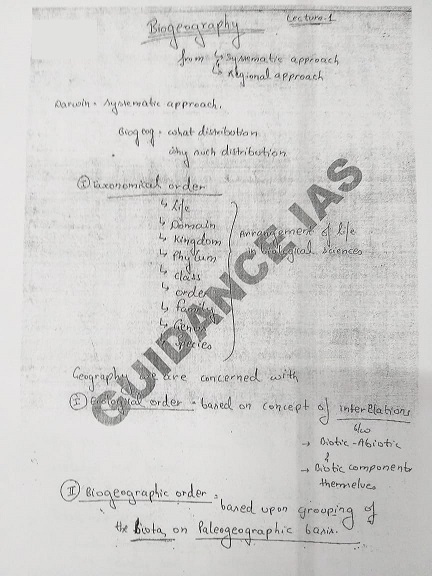 Lecture-1
Biogeography
from ↳ Systematic approach
↳ Regional approach
Darwin - Systematic approach.
Biogeog - what distribution
why such distribution
① Taxonomical order
↳ Life
↳ Domain
↳ Kingdom
↳ Phylum
↳ class
↳ order
↳ family
↳ Genus
↳ species
Arrangement of life
biological sciences
Geography we are concerned with
Ⓘ Ecological order - based on concept of interelations
b/w
→ Biotic-Abiotic
&
→ Biotic components
themselves
Ⅱ Biogeographic order - based upon grouping of
the biota, on Paleogeographic basis.
GUIDANCE IAS